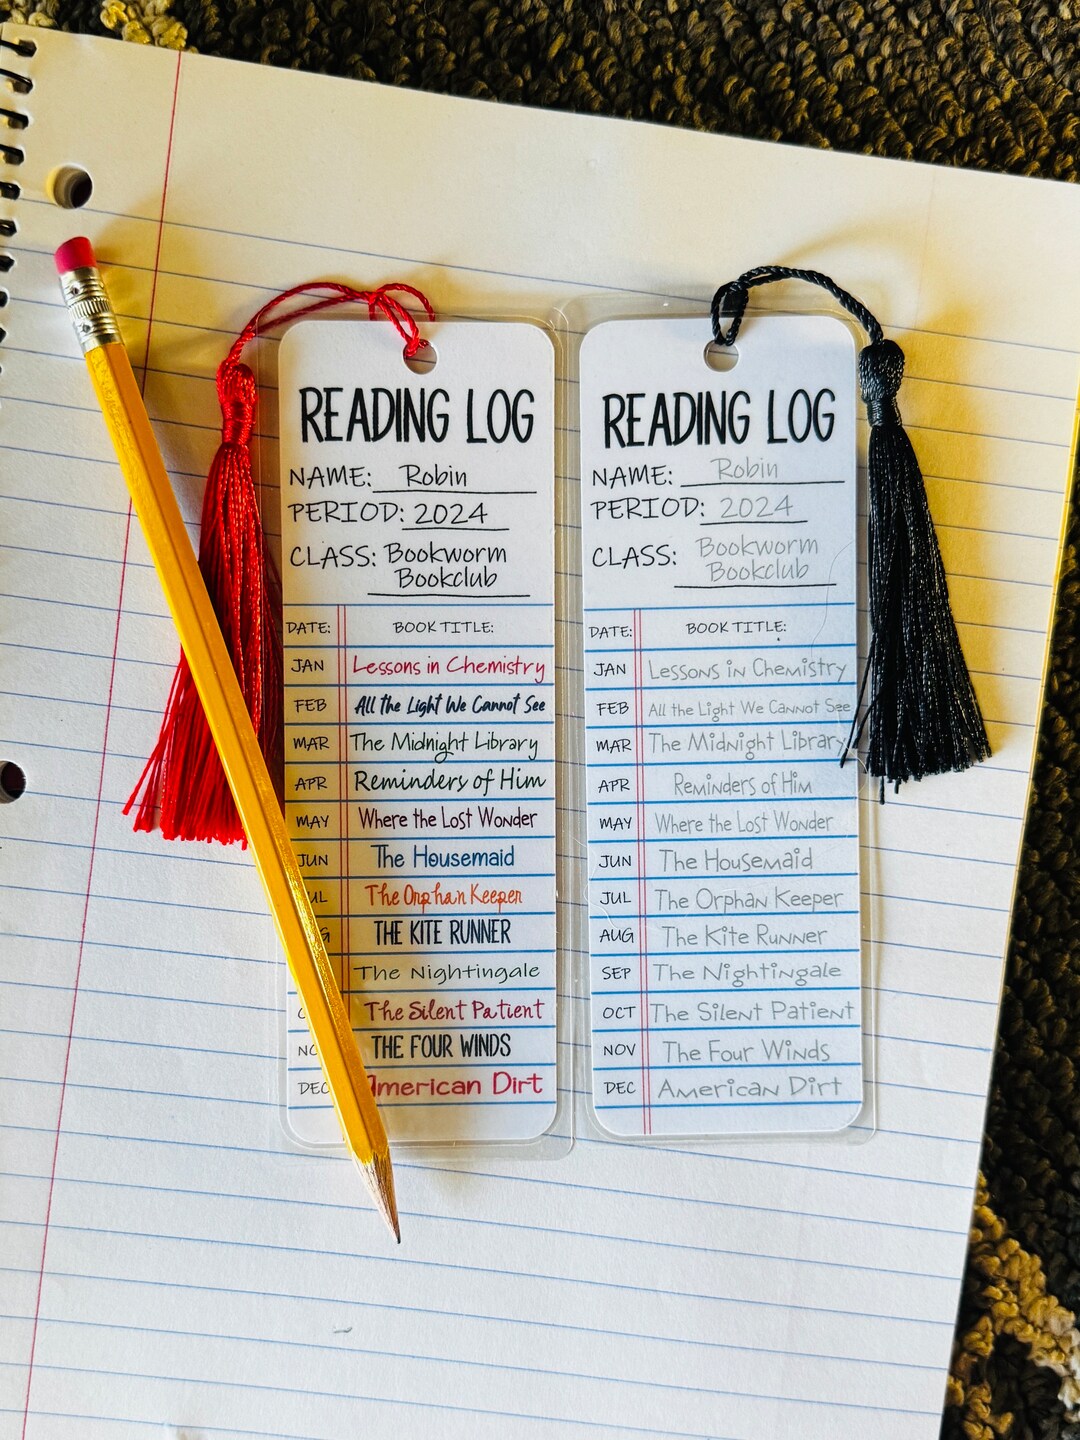 READING LOG
NAME: Robin
PERIOD: 2024
CLASS: Bookworm
Bookclub
DATE: BOOK TITLE:
JAN Lessons in Chemistry
FEB All the Light We Cannot See
MAR The Midnight Library
APR Reminders of Him
MAY Where the Lost Wonder
JUN The Housemaid
The Orphan Keeper
THE KITE RUNNER
The Nightingale
The Silent Patient
THE FOUR WINDS
DEC American Dirt
READING LOG
NAME: Robin
PERIOD: 2024
CLASS: Bookworm
Bookclub
DATE: BOOK TITLE:
JAN Lessons in Chemistry
FEB All the Light We Cannot See
MAR The Midnight Library
APR Reminders of Him
MAY Where the Lost Wonder
JUN The Housemaid
JUL The Orphan Keeper
AUG The Kite Runner
SEP The Nightingale
OCT The Silent Patient
NOV The Four Winds
DEC American Dirt